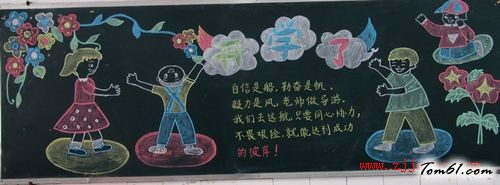 开学了
自信是船,勤奋是帆,
毅力是风,老师做导游.
我们去远航,只要同心协力,
不畏艰险,就能达到成功
的彼岸!
Tom61.com